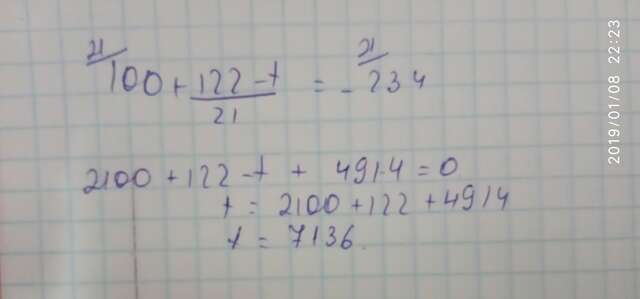 21/ 100 + 122 - t / 21 = - 21/ 234
2100 + 122 - t + 4914 = 0
t = 2100 + 122 + 4914
t = 7136.
2019/01/08 22:23